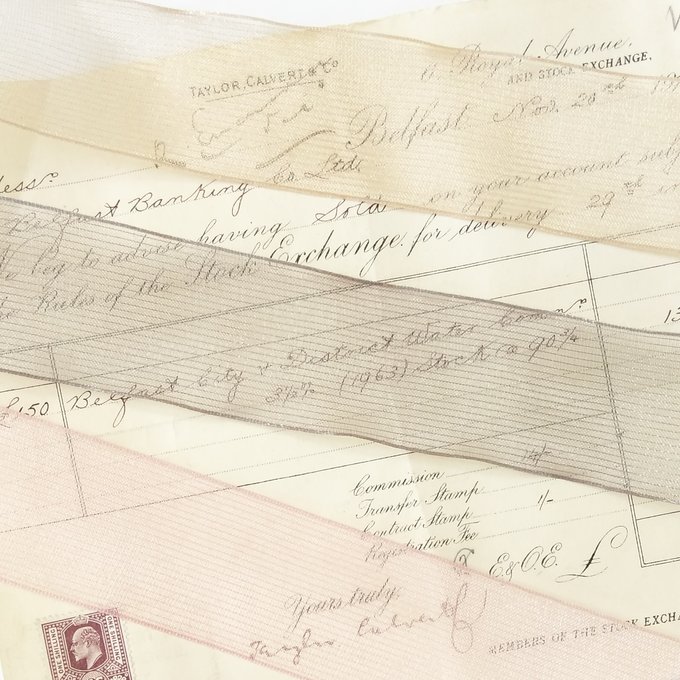 11 Royal Avenue,
AND STOCK EXCHANGE,
TAYLOR, CALVERT & Co
Belfast Nov. 26th 19
Mess.rs
Belfast Banking Co. Ltd.
We beg to advise having Sold on your account subj
to Rules of the Stock Exchange, for delivery 29th in
£150 Belfast City & District Water Comnrs 13
3½% (1963) Stock @ 90¾
Commission 14/-
Transfer Stamp
Contract Stamp 1/-
Registration Fee
E.&O.E. £
Yours truly,
Taylor Calvert
MEMBERS OF THE STOCK EXCHA
ONE SHILLING